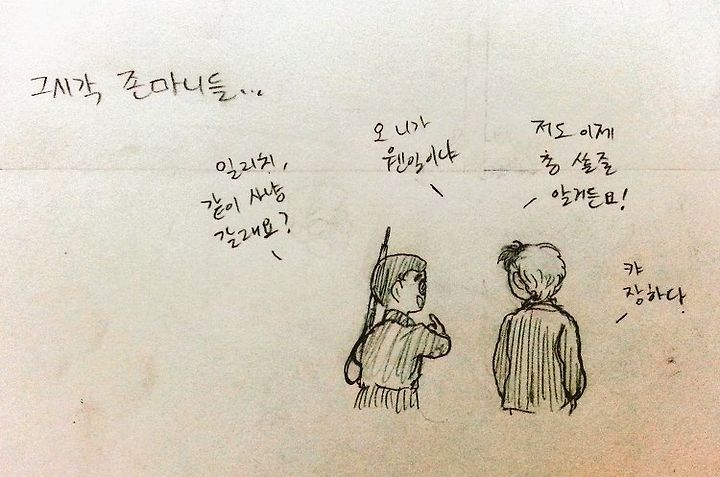 그시각 존마니들...
일리치,
같이 사냥
갈래요?
오 니가
웬일이냐
저도 이제
총 쏠줄
알거든요!
캬
장하다.